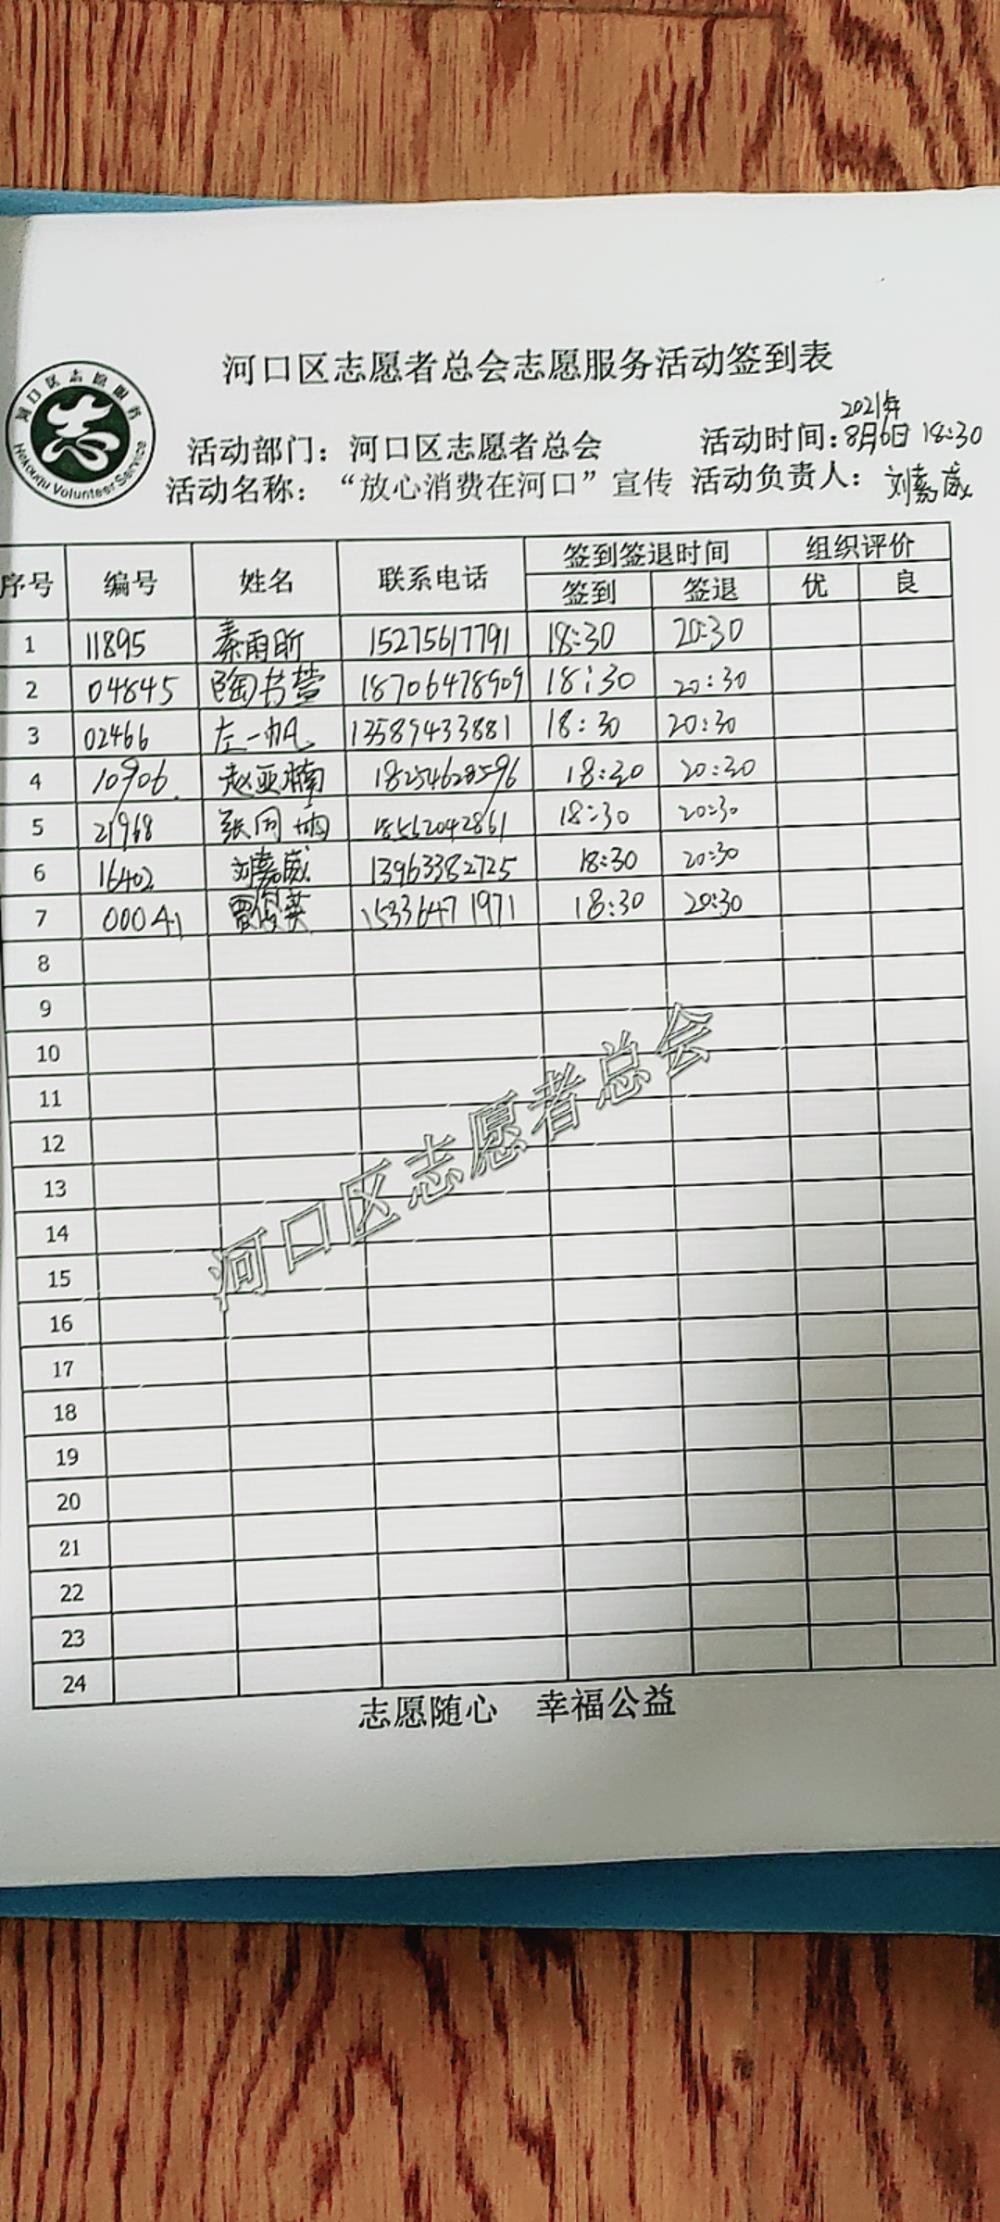 河口区志愿者总会志愿服务活动签到表
河口区志愿服务
Hekouqu Volunteer Service
活动部门：河口区志愿者总会 活动时间：2021年8月6日 18:30
活动名称：“放心消费在河口”宣传 活动负责人：刘嘉威
序号 编号 姓名 联系电话 签到签退时间 组织评价
签到 签退 优 良
1 11895 秦雨昕 15275617791 18:30 20:30
2 04845 陶书萱 18706478909 18:30 20:30
3 02466 左一帆 13589433881 18:30 20:30
4 10906 赵亚楠 18254628596 18:30 20:30
5 21968 张同 18562042861 18:30 20:30
6 16402 刘嘉威 13963382725 18:30 20:30
7 00041 英 15336471971 18:30 20:30
8
9
10
11
12
13
14
15
16
17
18
19
20
21
22
23
24
河口区志愿者总会
志愿随心 幸福公益